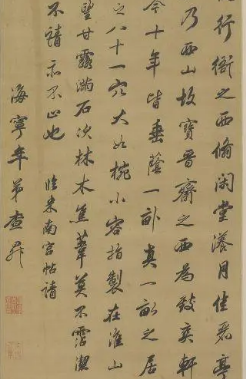 行衙之西翛閑堂漾月佳麗
乃西山故寶晉齋之西為致爽軒
今十年皆垂蔭一畝真一畝之居
之八十一穴大如椀小容指製在淮山
望甘露滿石次林木焦葦莫不霑潔
不請亦不止也 臨米南宮帖請
海寧年弟查昇